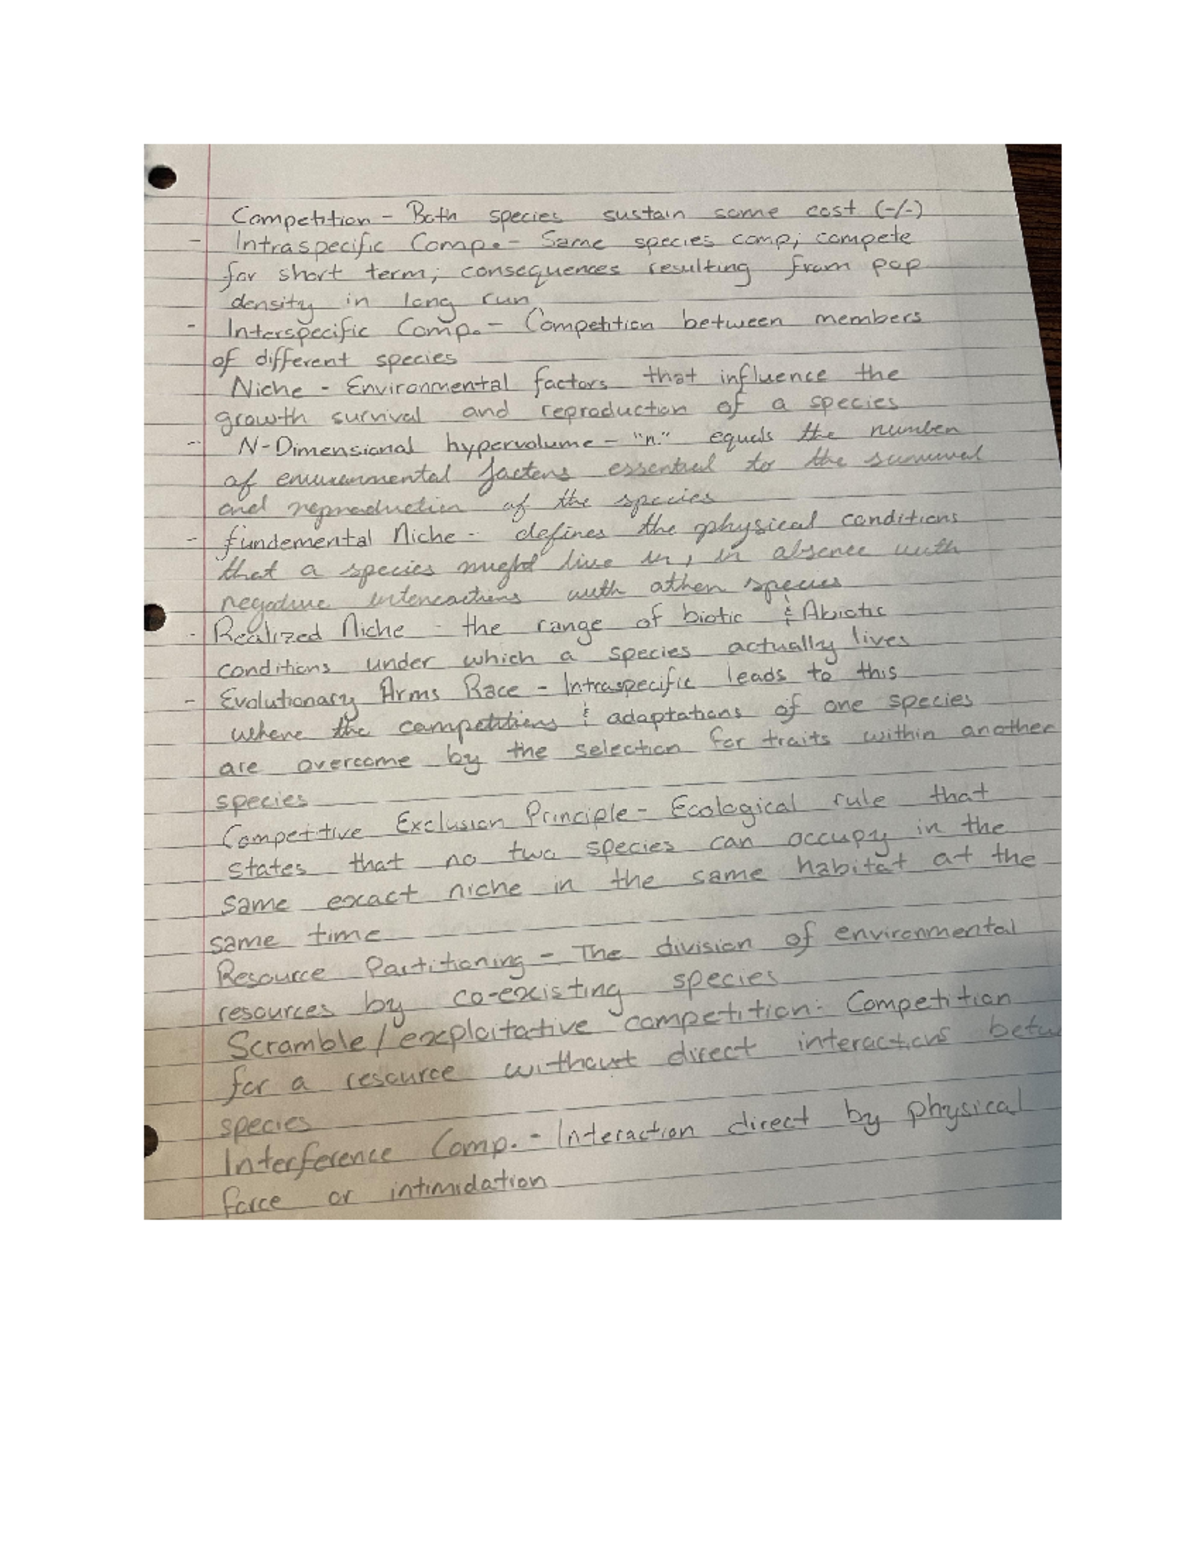 Competition - Both species sustain some cost (-/-)
- Intraspecific Comp. - Same species comp; compete
for short term; consequences resulting from pop
density in long run
- Interspecific Comp. - Competition between members
of different species
Niche - Environmental factors that influence the
growth survival and reproduction of a species
- N-Dimensional hypervolume - "n" equals the number
of environmental factors essential to the survival
and reproduction of the species
- fundemental Niche - defines the physical conditions
that a species might live in, in absence with
negative interactions with other species
- Realized Niche - the range of biotic & Abiotic
conditions under which a species actually lives
- Evolutionary Arms Race - Intraspecific leads to this
where the competitions & adaptations of one species
are overcome by the selection for traits within another
species
Competitive Exclusion Principle - Ecological rule that
states that no two species can occupy in the
same exact niche in the same habitat at the
same time
Resource Partitioning - The division of environmental
resources by co-existing species
Scramble/exploitative competition: Competition
for a resource without direct interactions betw
species
Interference Comp. - Interaction direct by physical
force or intimidation